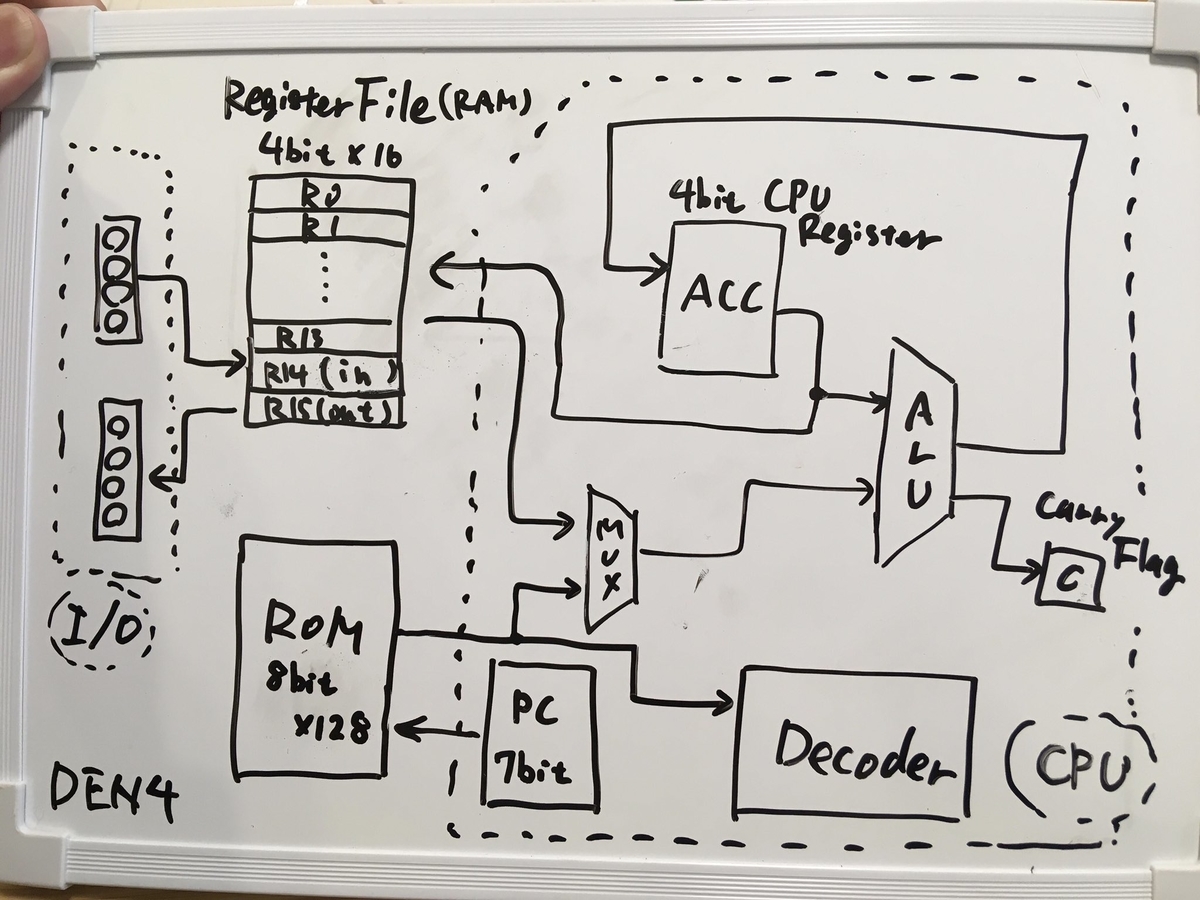 Register File (RAM)
4bit x 16
R0
R1
R13
R14 (in)
R15 (out)
4bit CPU
Register
ACC
ALU
MUX
Carry
Flag
C
I/O
ROM
8bit
x128
PC
7bit
Decoder
CPU
DEN4